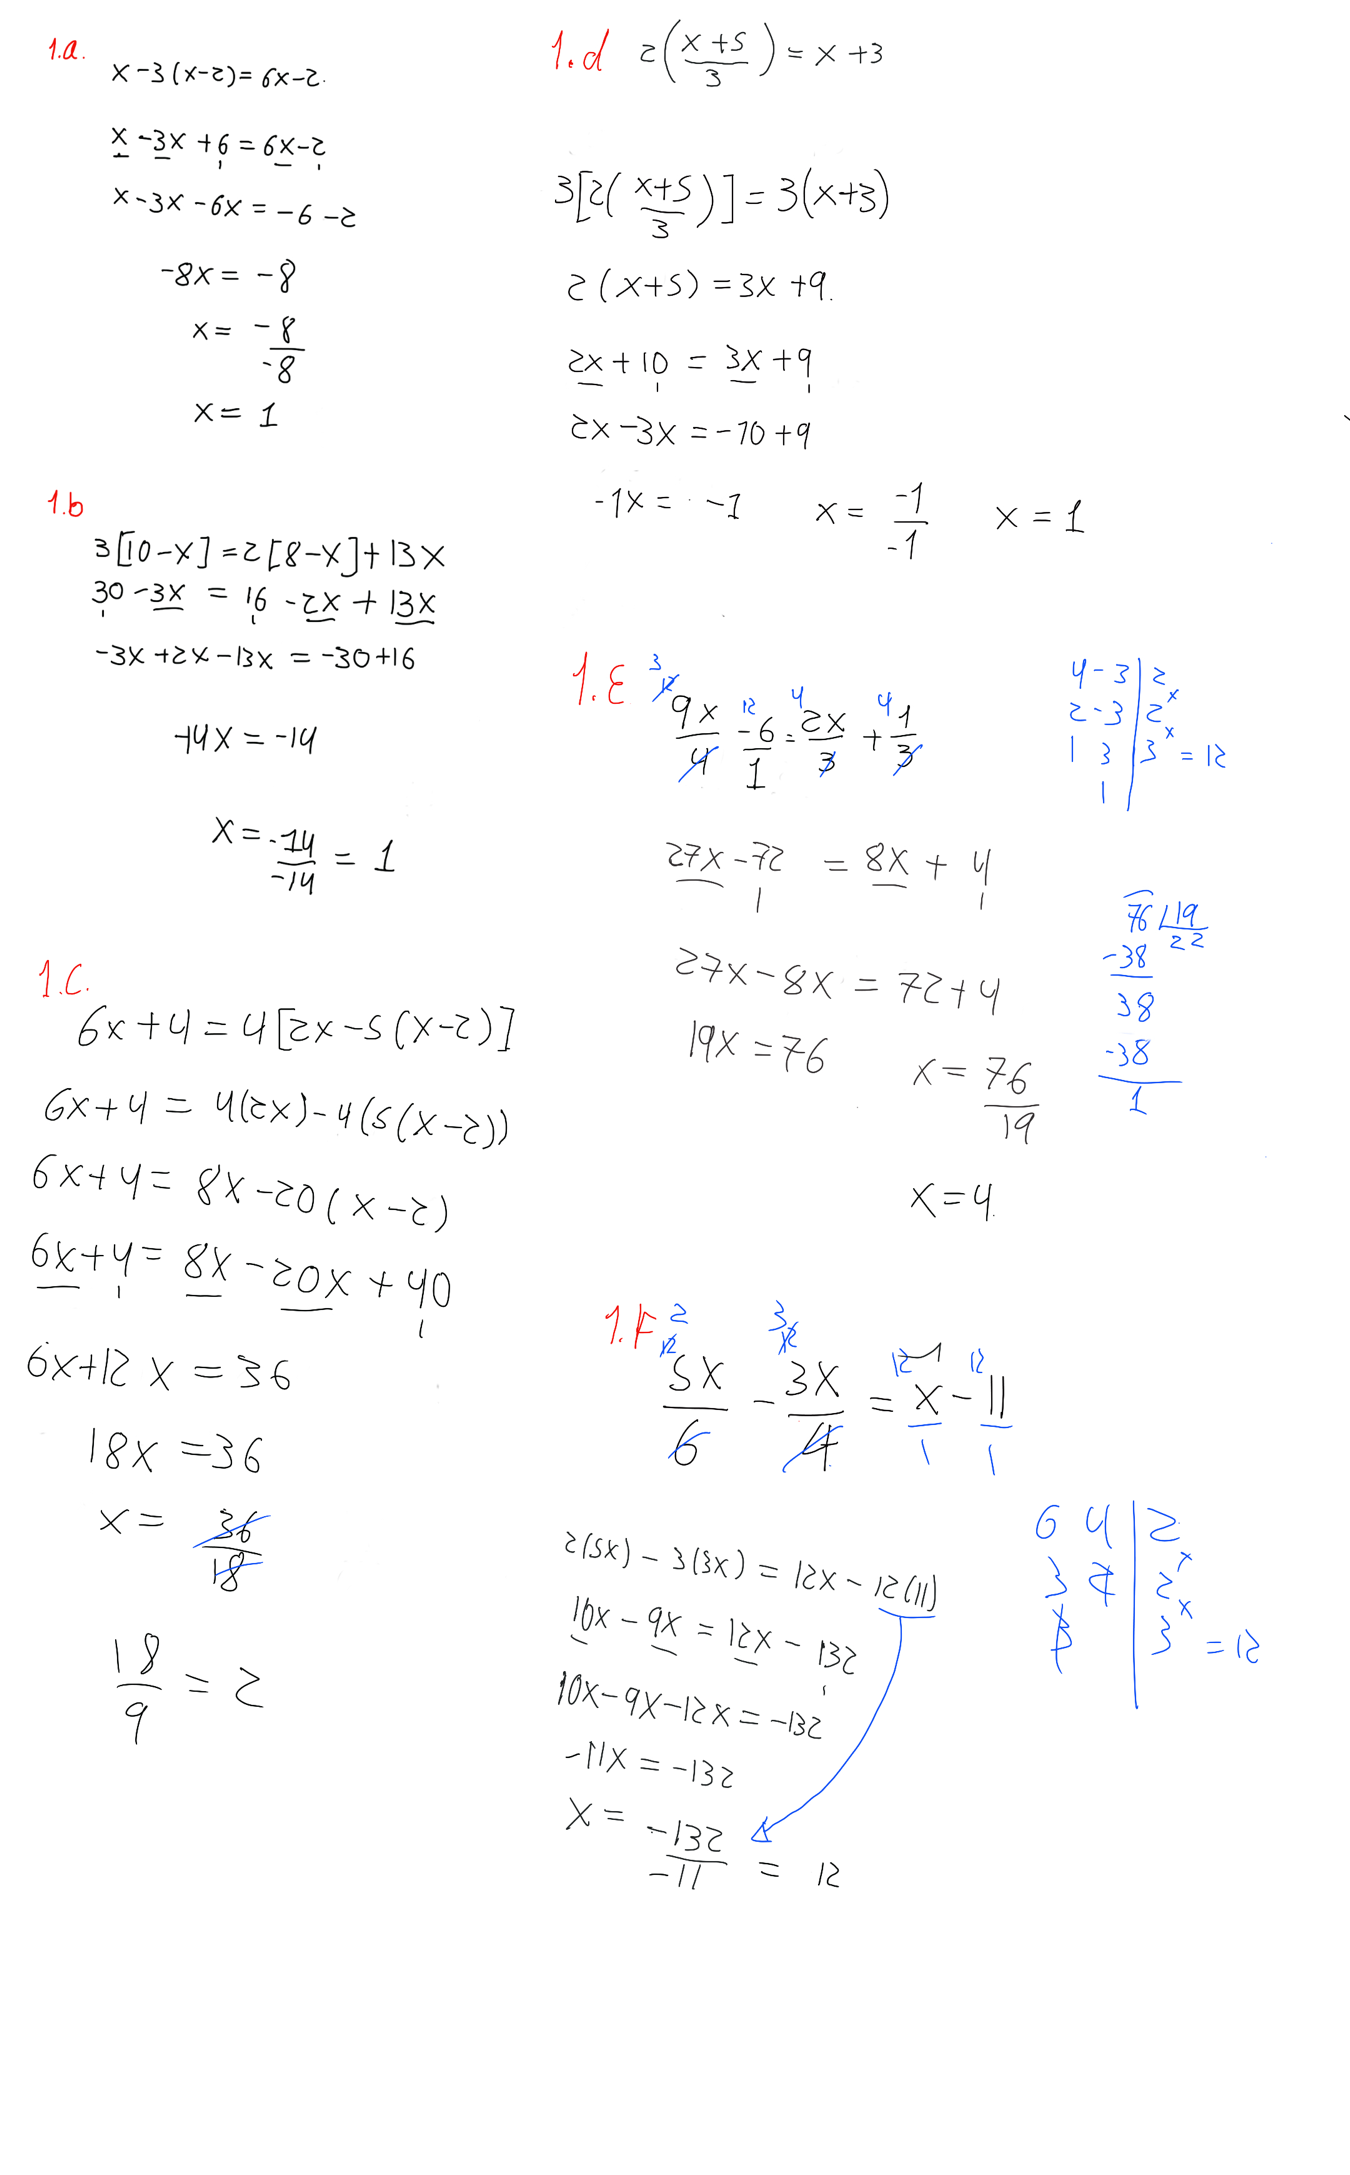 1.a.
x-3(x-2)=6x-2.
x-3x+6=6x-2
x-3x-6x=-6-2
-8x=-8
x=-8/-8
x=1
1.b
3[10-x]=2[8-x]+13x
30-3x=16-2x+13x
-3x+2x-13x=-30+16
-14x=-14
x=-14/-14=1
1.C.
6x+4=4[2x-5(x-2)]
6x+4=4(2x)-4(5(x-2))
6x+4=8x-20(x-2)
6x+4=8x-20x+40
6x+12x=36
18x=36
x=36/18
18/9=2
1.d 2(x+5/3)=x+3
3[2(x+5/3)]=3(x+3)
2(x+5)=3x+9.
2x+10=3x+9
2x-3x=-10+9
-1x=-1 x=-1/-1 x=1
1.E
3 12 12 4 4
9x/4 -6/1=2x/3+1/3
4-3|2x
2-3|2x
1 3|3=12
1
27x-72=8x+4
27x-8x=72+4
19x=76 x=76/19
76 19
22
-38
38
-38
1
x=4.
1.F 2 12 3 12 12 12
5x/6-3x/4=x/1-11/1
6 4|2x
3 2|2x
3|3=12
2(5x)-3(3x)=12x-12(11)
10x-9x=12x-132
10x-9x-12x=-132
-11x=-132
x=-132/-11=12